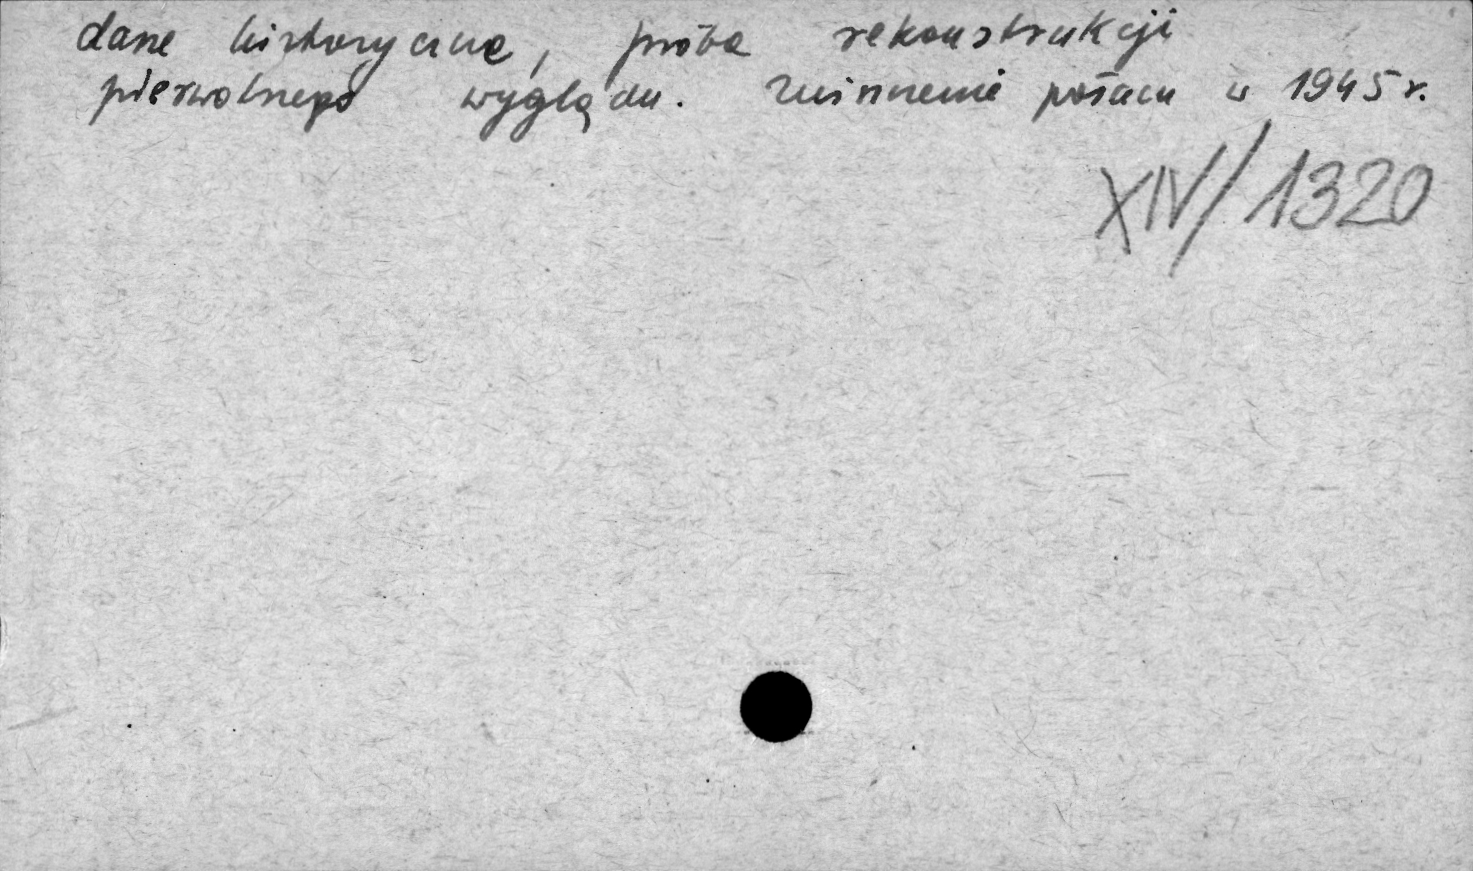 dane historyczne, próba rekonstrukcji
pierwotnego wyglądu. Zniszczenie pałacu w 1945 r.
XIV/1320